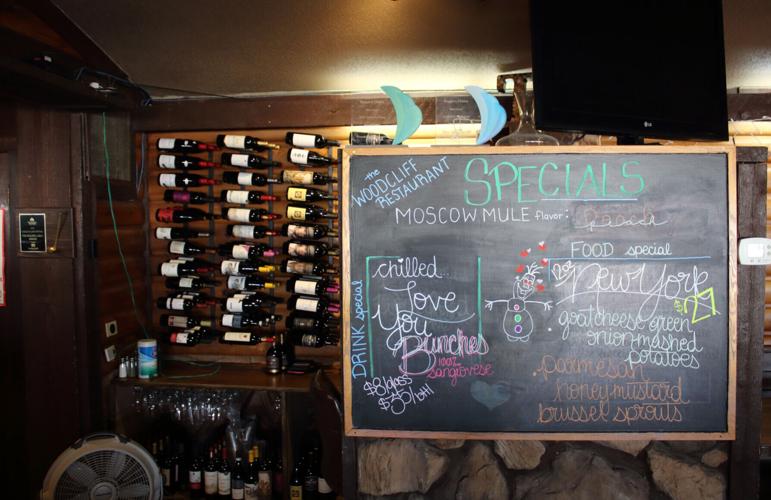 the
WOODCLIFF
RESTAURANT
SPECIALS
MOSCOW MULE flavor: Peach
FOOD special
DRINK special
chilled...
Love
You
Bunches
100%
sangiovese
$8/glass
NewYork
goatcheese green
onion mashed
potatoes
parmesan
honey mustard
brussel sprouts
LG